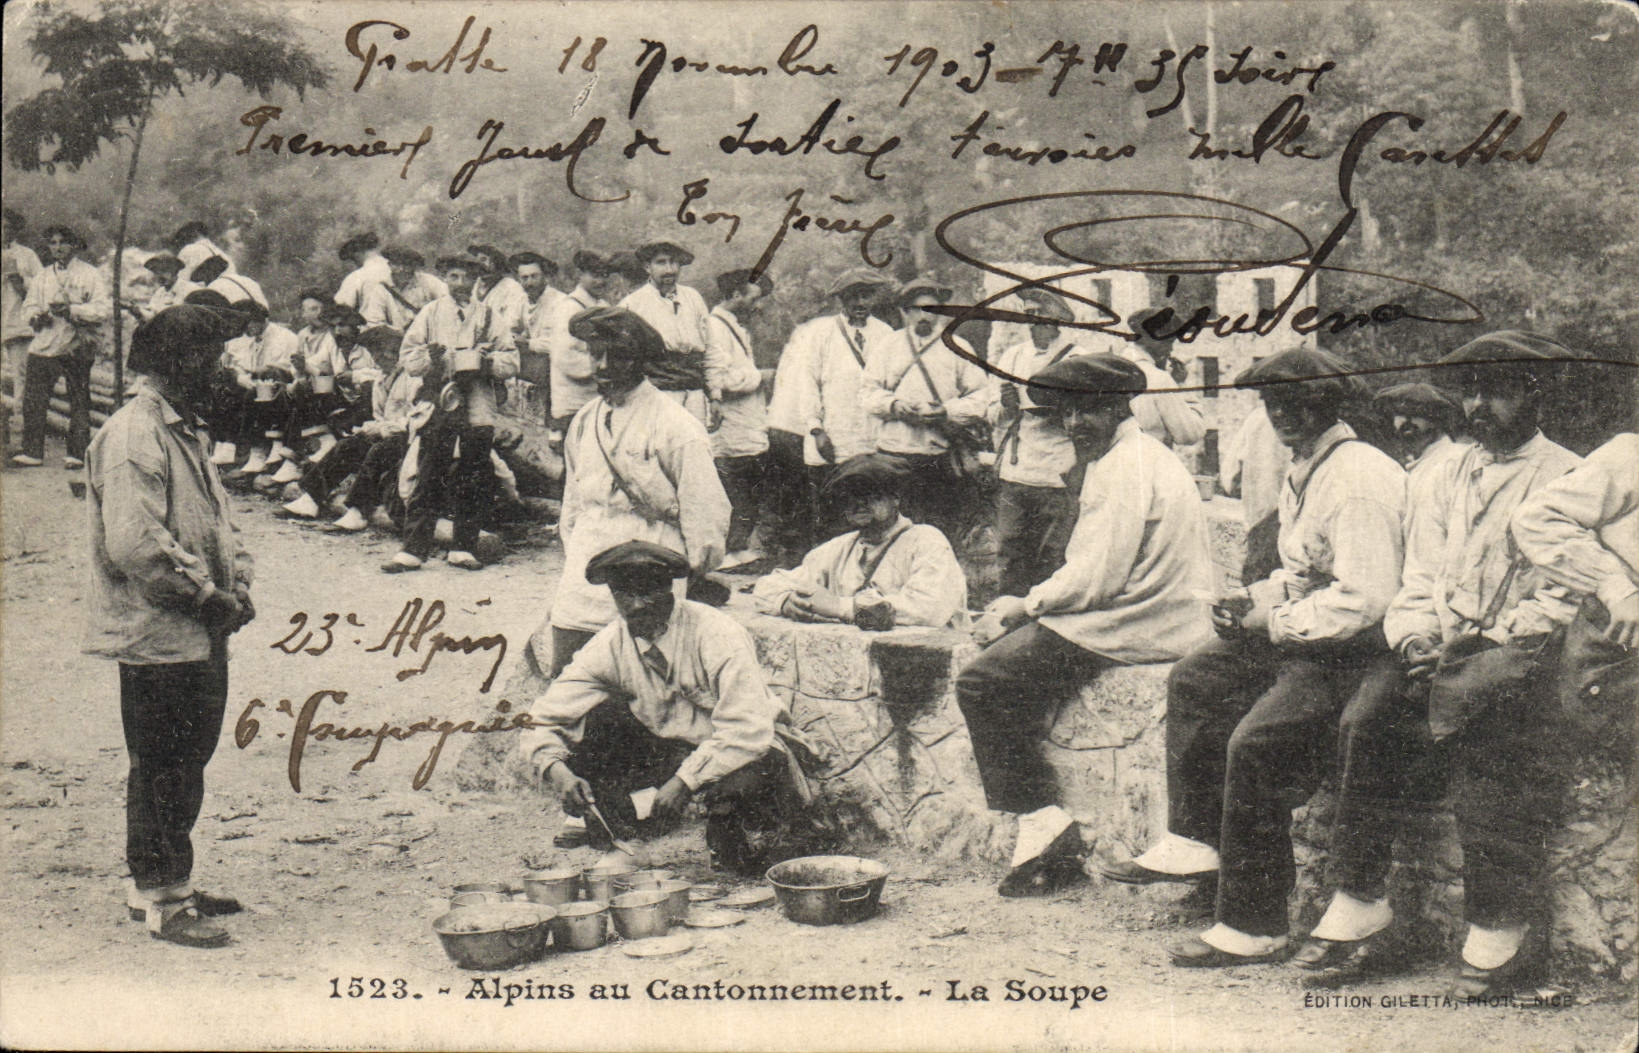 Grasse 18 Novembre 1903 - 7H 35 Soire
Premiers Jours de Sorties t'envoies mille Caresses
Ton frère
23e Alpin
6e Compagnie
1523. - Alpins au Cantonnement. - La Soupe
ÉDITION GILETTA, PHOT., NICE